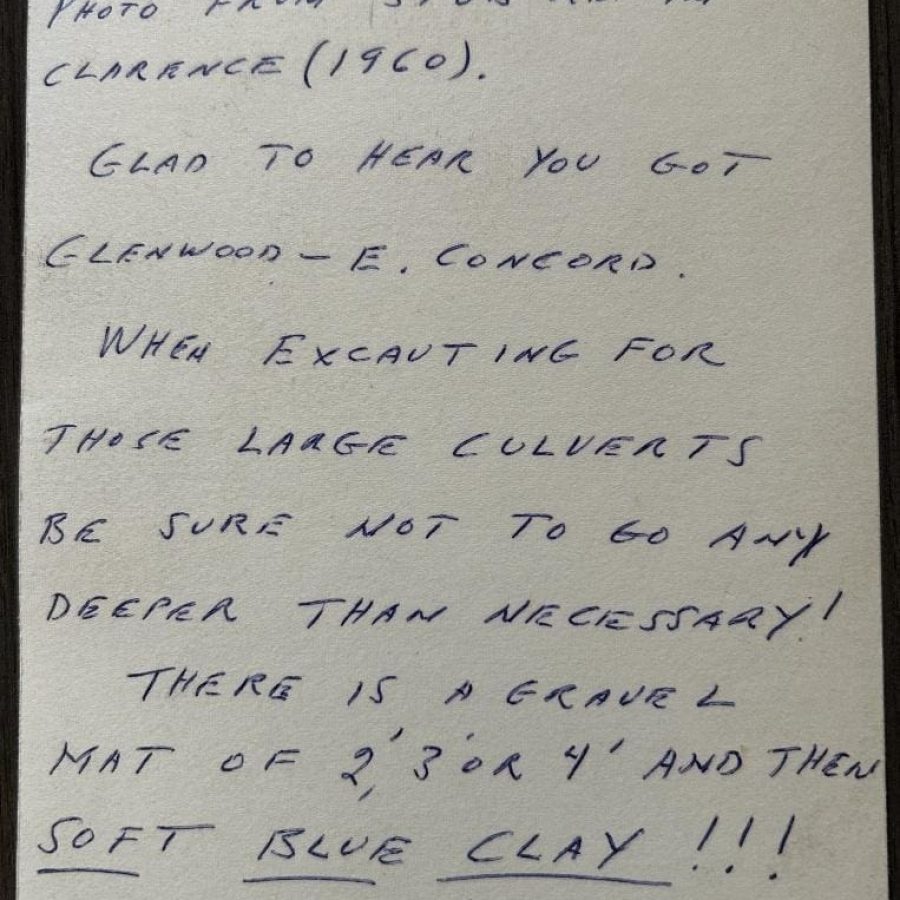 PHOTO FROM
CLARENCE (1960).
GLAD TO HEAR YOU GOT
GLENWOOD - E. CONCORD.
WHEN EXCAUTING FOR
THOSE LARGE CULVERTS
BE SURE NOT TO GO ANY
DEEPER THAN NECESSARY!
THERE IS A GRAVEL
MAT OF 2', 3' OR 4' AND THEN
SOFT BLUE CLAY !!!